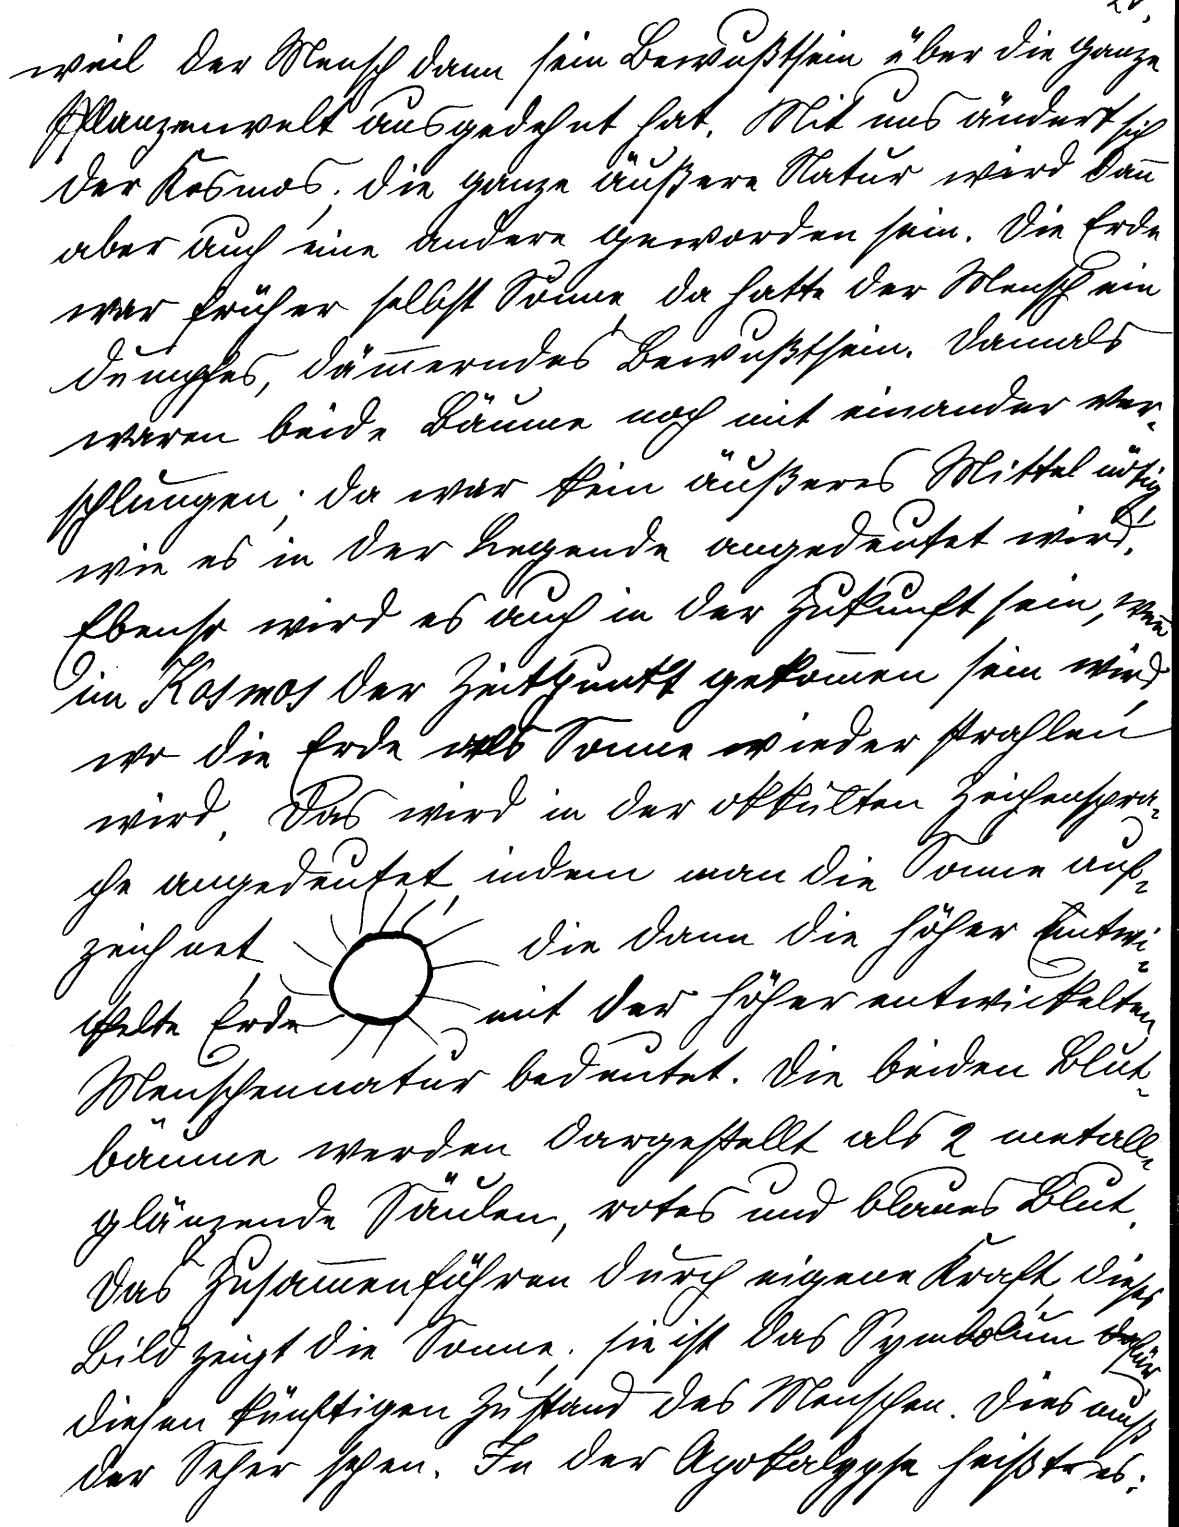 weil der Mensch dann sein Bewußtsein über die ganze
Pflanzenwelt ausgedehnt hat. Mit uns ändert sich
der Kosmos; die ganze äußere Natur wird dan̄
aber auch eine andere geworden sein. Die Erde
war früher selbst Sonne, da hatte der Mensch ein
dumpfes, däm̄erndes Bewußtsein. Damals
waren beide Bäume noch mit einander ver-
schlungen; da war kein äußeres Mittel nötig,
wie es in der Legende angedeutet wird.
Ebenso wird es auch in der Zukunft sein, wen̄
im Kosmos der Zeitpunkt gekom̄en sein wird,
wo die Erde als Sonne wieder strahlen
wird. Das wird in der okkulten Zeichenspra-
che angedeutet, indem man die Sonne auf-
zeichnet, die dann die höher Entwi-
ckelte Erde mit der höher entwickelten
Menschennatur bedeutet. Die beiden Blut-
bäume werden dargestellt als 2 metall-
glänzende Säulen, rotes und blaues Blut.
Das Zusam̄enführen durch eigene Kraft, dieses
Bild zeigt die Sonne; sie ist das Symbolum für
diesen künftigen Zustand des Menschen. Dies muß
der Seher sehen. In der Apokalypse heißt es: